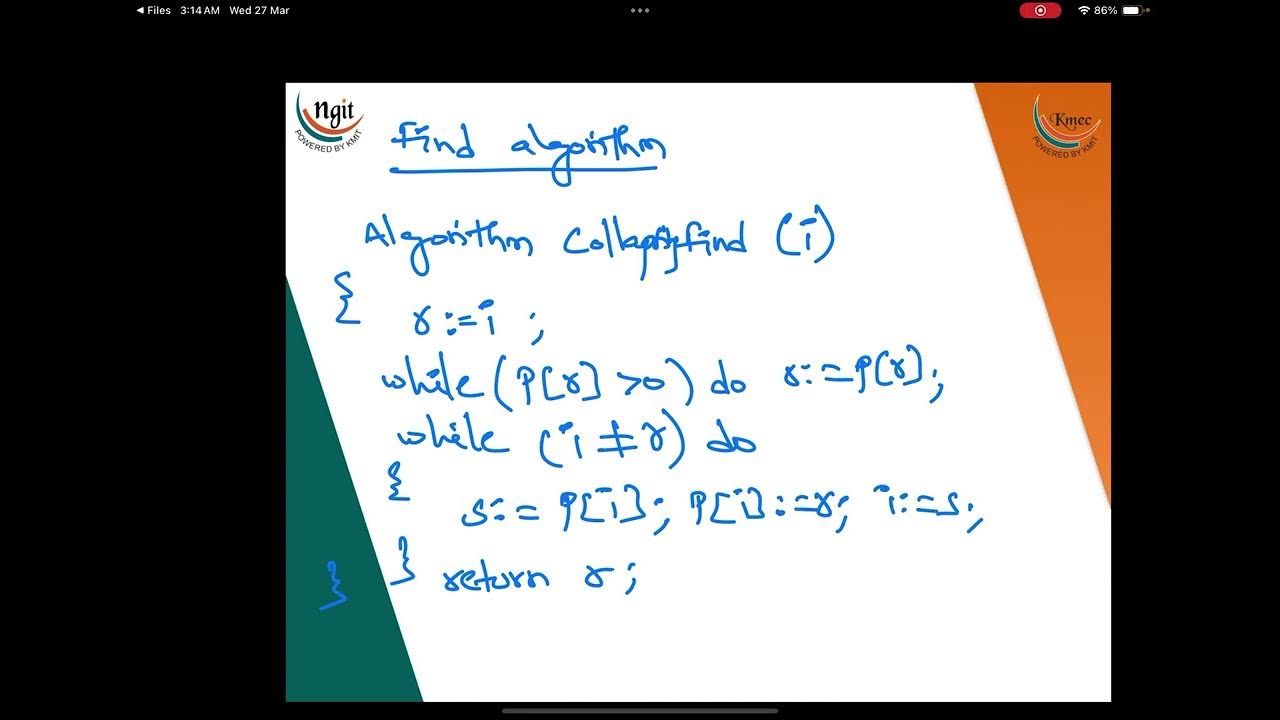 Files 3:14 AM Wed 27 Mar 86%
Ngit
POWERED BY KMIT
Kmec
POWERED BY KMIT
Find algorithm
Algorithm Collapsingfind (i)
{
r:=i ;
while (P[r] >0) do r:=P[r];
while (i ≠ r) do
{
s:= P[i]; P[i]:=r; i:=s;
}
return r;
}